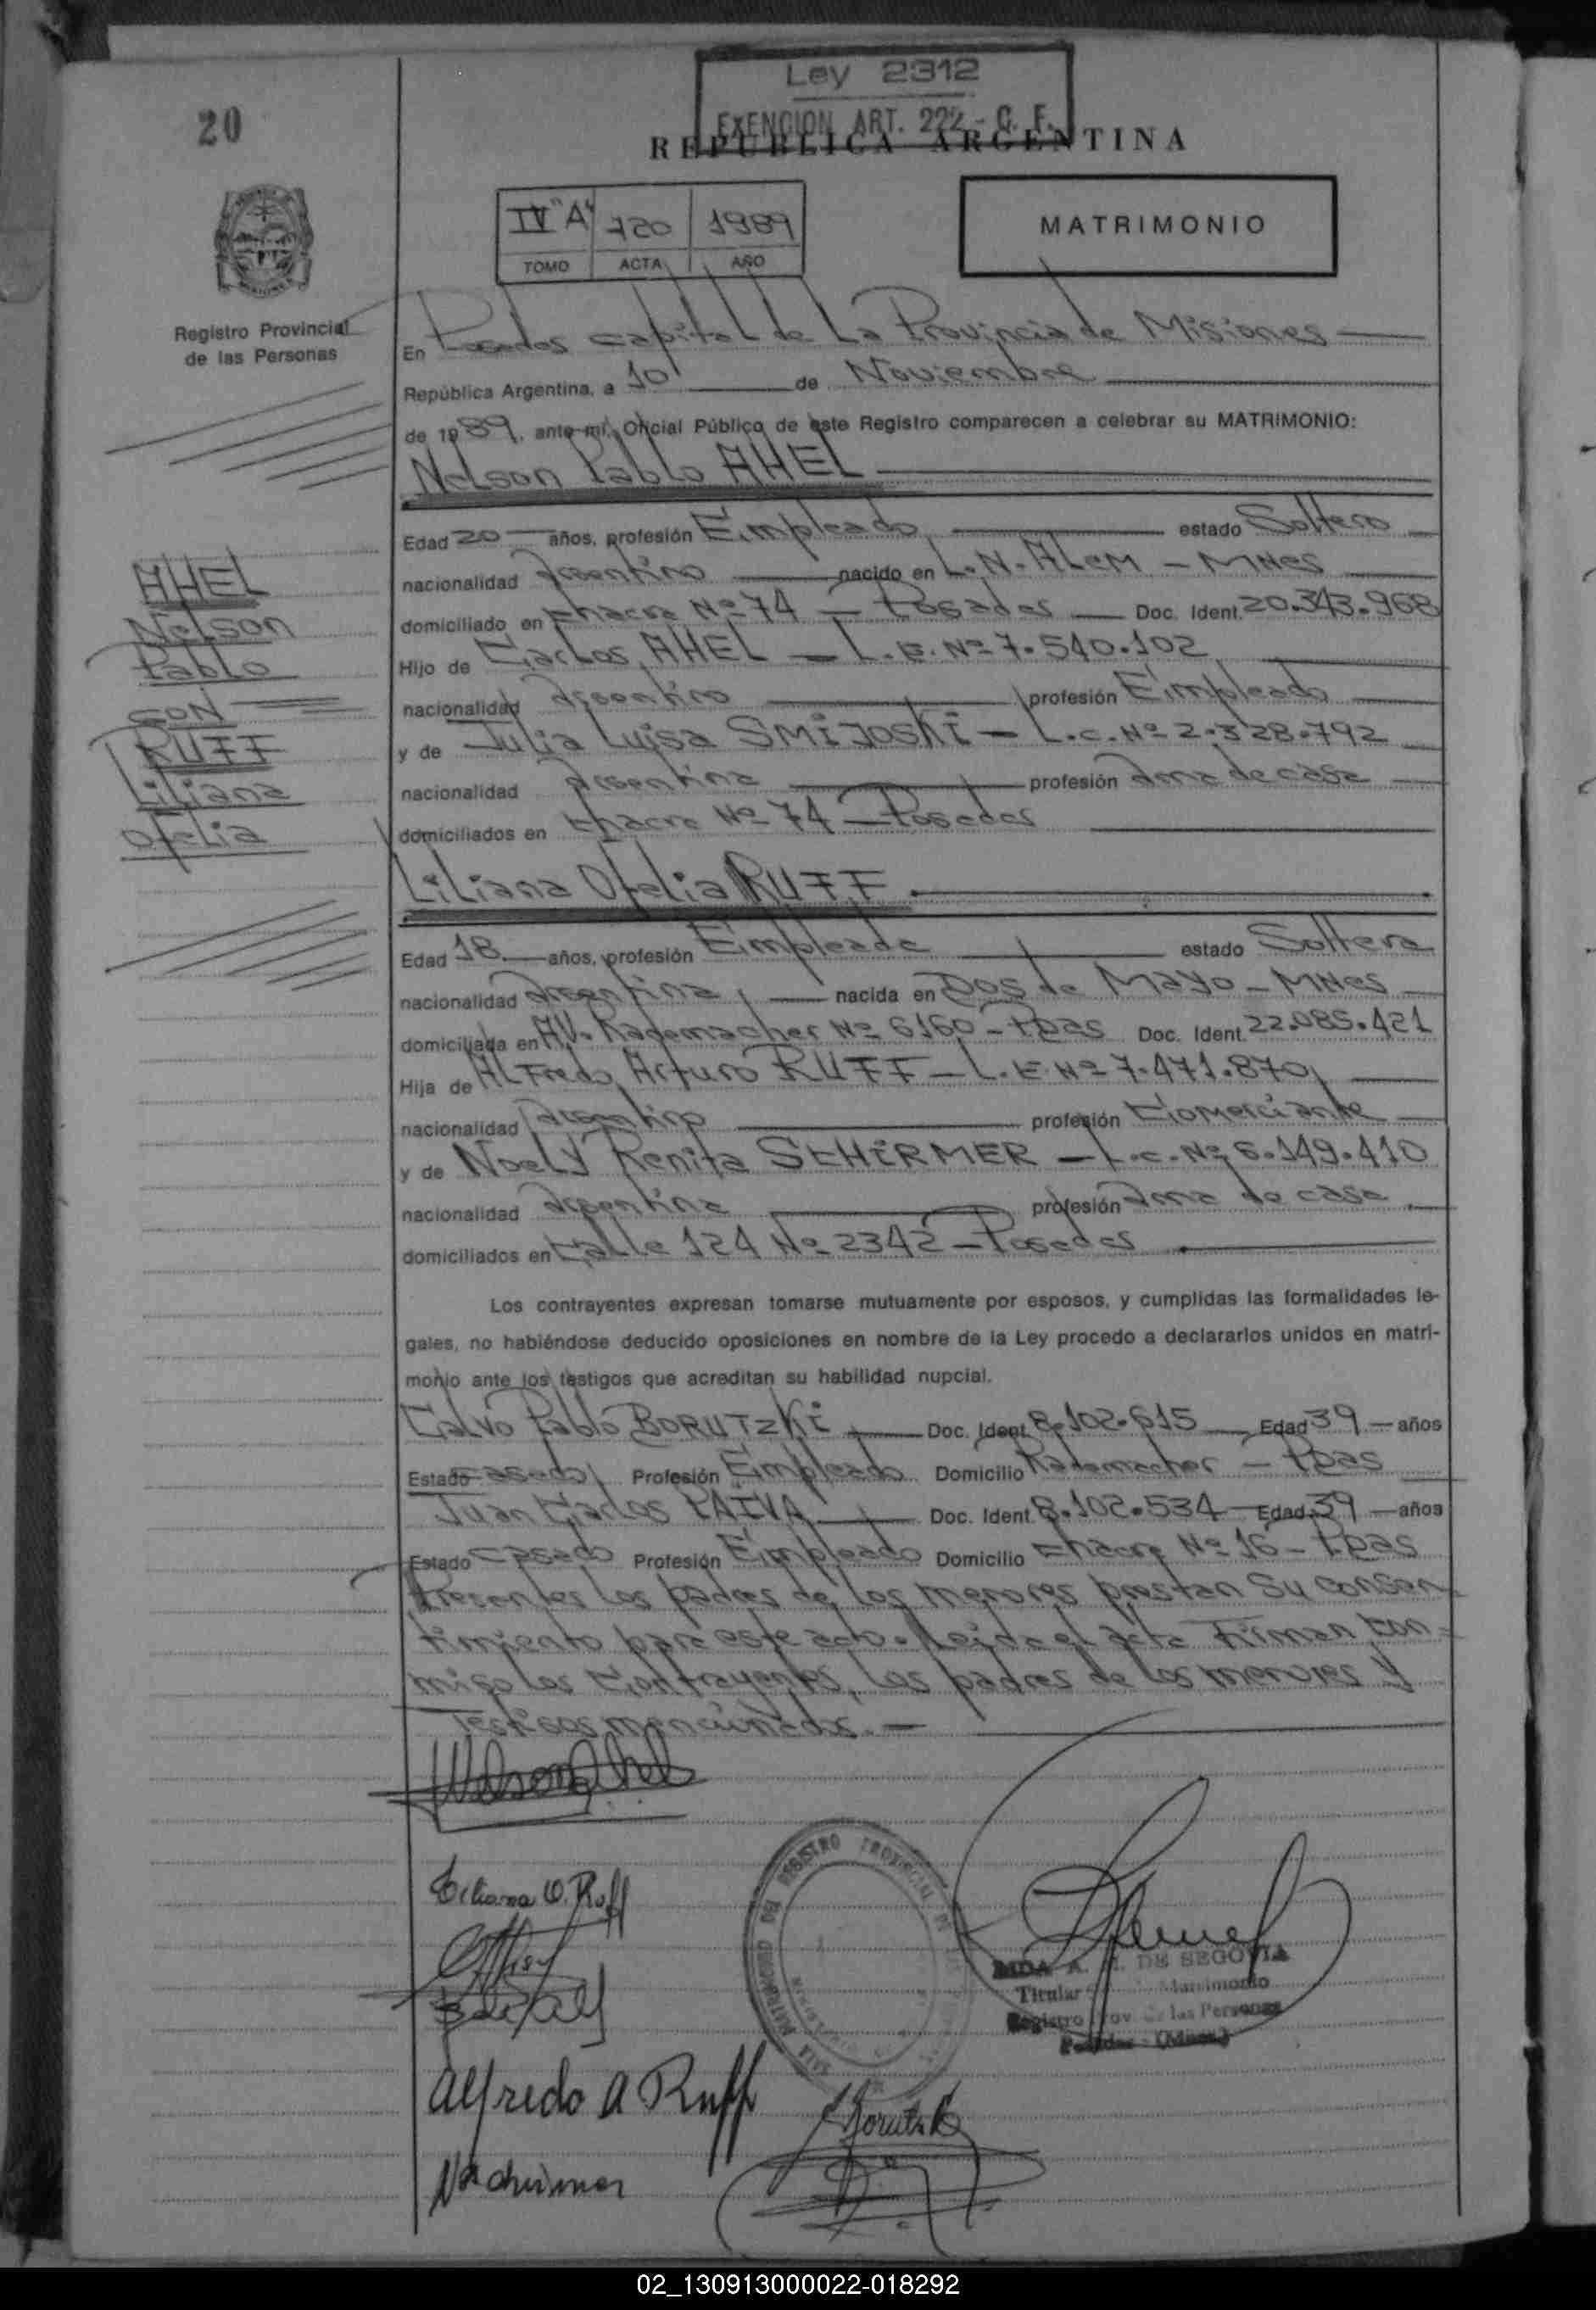 Ley 2312
EXENCION ART. 222 - C. F.
20
REPUBLICA ARGENTINA
IV "A" 720 1989
TOMO ACTA AÑO
MATRIMONIO
Registro Provincial
de las Personas
En Posadas capital de La Provincia de Misiones
República Argentina, a 10 de Noviembre
de 1989, ante mí, Oficial Público de este Registro comparecen a celebrar su MATRIMONIO:
Nelson Pablo AHEL
Edad 20 años, profesión Empleado estado Soltero
nacionalidad Argentino nacido en L.N. ALEM - MNES
domiciliado en Chacra Nº 74 - Posadas Doc. Ident. 20.343.968
Hijo de Carlos AHEL - L.E. Nº 7.540.102
nacionalidad Argentino profesión Empleado
y de Julia Luisa SMIJOSKI - L.C. Nº 2.328.792
nacionalidad Argentina profesión Ama de casa
domiciliados en Chacra Nº 74 - Posadas
AHEL
Nelson
Pablo
CON
RUFF
Liliana
Ofelia
Liliana Ofelia RUFF
Edad 18 años, profesión Empleada estado Soltera
nacionalidad Argentina, nacida en Dos de Mayo - MNes
domiciliada en AV. Rademacher Nº 6160 - Pdas Doc. Ident. 22.085.421
Hija de ALFredo Arturo RUFF - L.E. Nº 7.471.870
nacionalidad Argentino profesión Comerciante
y de Noely Renita SCHIRMER - L.C. Nº 6.149.410
nacionalidad Argentina profesión Ama de casa
domiciliados en Calle 124 Nº 2342 - Posadas
Los contrayentes expresan tomarse mutuamente por esposos, y cumplidas las formalidades le-
gales, no habiéndose deducido oposiciones en nombre de la Ley procedo a declararlos unidos en matri-
monio ante los testigos que acreditan su habilidad nupcial.
Calvo Pablo BORUTZKI Doc. Ident. 8.102.615 Edad 39 años
Estado casado Profesión Empleado Domicilio Rademacher - Pdas
Juan Carlos PAIVA Doc. Ident. 8.102.534 Edad 39 años
Estado casado Profesión Empleado Domicilio Chacra Nº 16 - Pdas
Presentes los padres de los menores prestan su consen-
timiento para este acto. Leida el acta Firman con-
migo los Contrayentes, los padres de los menores y
Testigos mencionados. -
Nelson Ahel
Liliana O. Ruff
Alfredo A Ruff
REGISTRO PROVINCIAL
A. M. DE SEGOVIA
Titular Matrimonio
Registro Prov. de las Personas
Posadas - (Mnes)
02_130913000022-018292